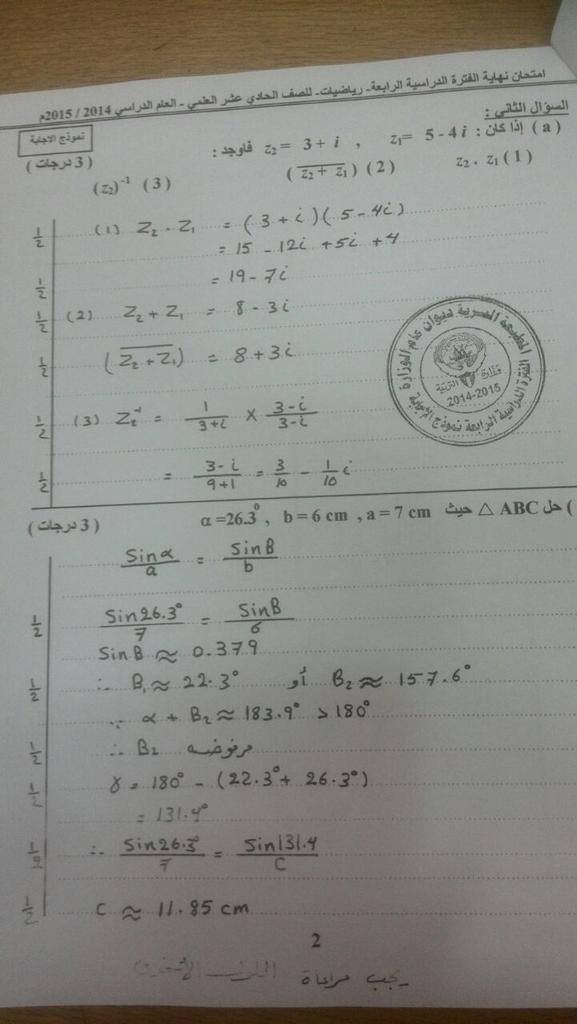 امتحان نهاية الفترة الدراسية الرابعة - رياضيات - للصف الحادي عشر العلمي - العام الدراسي 2014 / 2015م
السؤال الثاني :
نموذج الإجابة
( a ) إذا كان : z₁= 5 - 4i , z₂ = 3 + i فأوجد :
( 3 درجات )
(1) z₂ . z₁ (2) (\overline{z₂ + z₁}) (3) (z₂)⁻¹
½ (1) Z₂ . Z₁ = (3 + i)(5 - 4i)
= 15 - 12i + 5i + 4
½ = 19 - 7i
½ (2) Z₂ + Z₁ = 8 - 3i
½ (\overline{Z₂ + Z₁}) = 8 + 3i
½ (3) Z₂⁻¹ = 1/(3+i) × (3-i)/(3-i)
½ = (3-i)/(9+1) = 3/10 - 1/10 i
المطبعة السرية ديوان عام الوزارة
وزارة التربية
2014-2015
الفترة الدراسية الرابعة نموذج الإجابة
) حل △ ABC حيث α =26.3° , b = 6 cm , a = 7 cm
( 3 درجات )
Sin α/a = Sin B/b
½ Sin 26.3°/7 = Sin B/6
Sin B ≈ 0.379
½ ∴ B₁ ≈ 22.3° أو B₂ ≈ 157.6°
∵ α + B₂ ≈ 183.9° > 180°
½ ∴ B₂ مرفوضه
½ γ = 180° - (22.3° + 26.3°)
= 131.4°
½ ∴ Sin 26.3°/7 = Sin 131.4/C
½ C ≈ 11.85 cm
2
يجب مراعاة